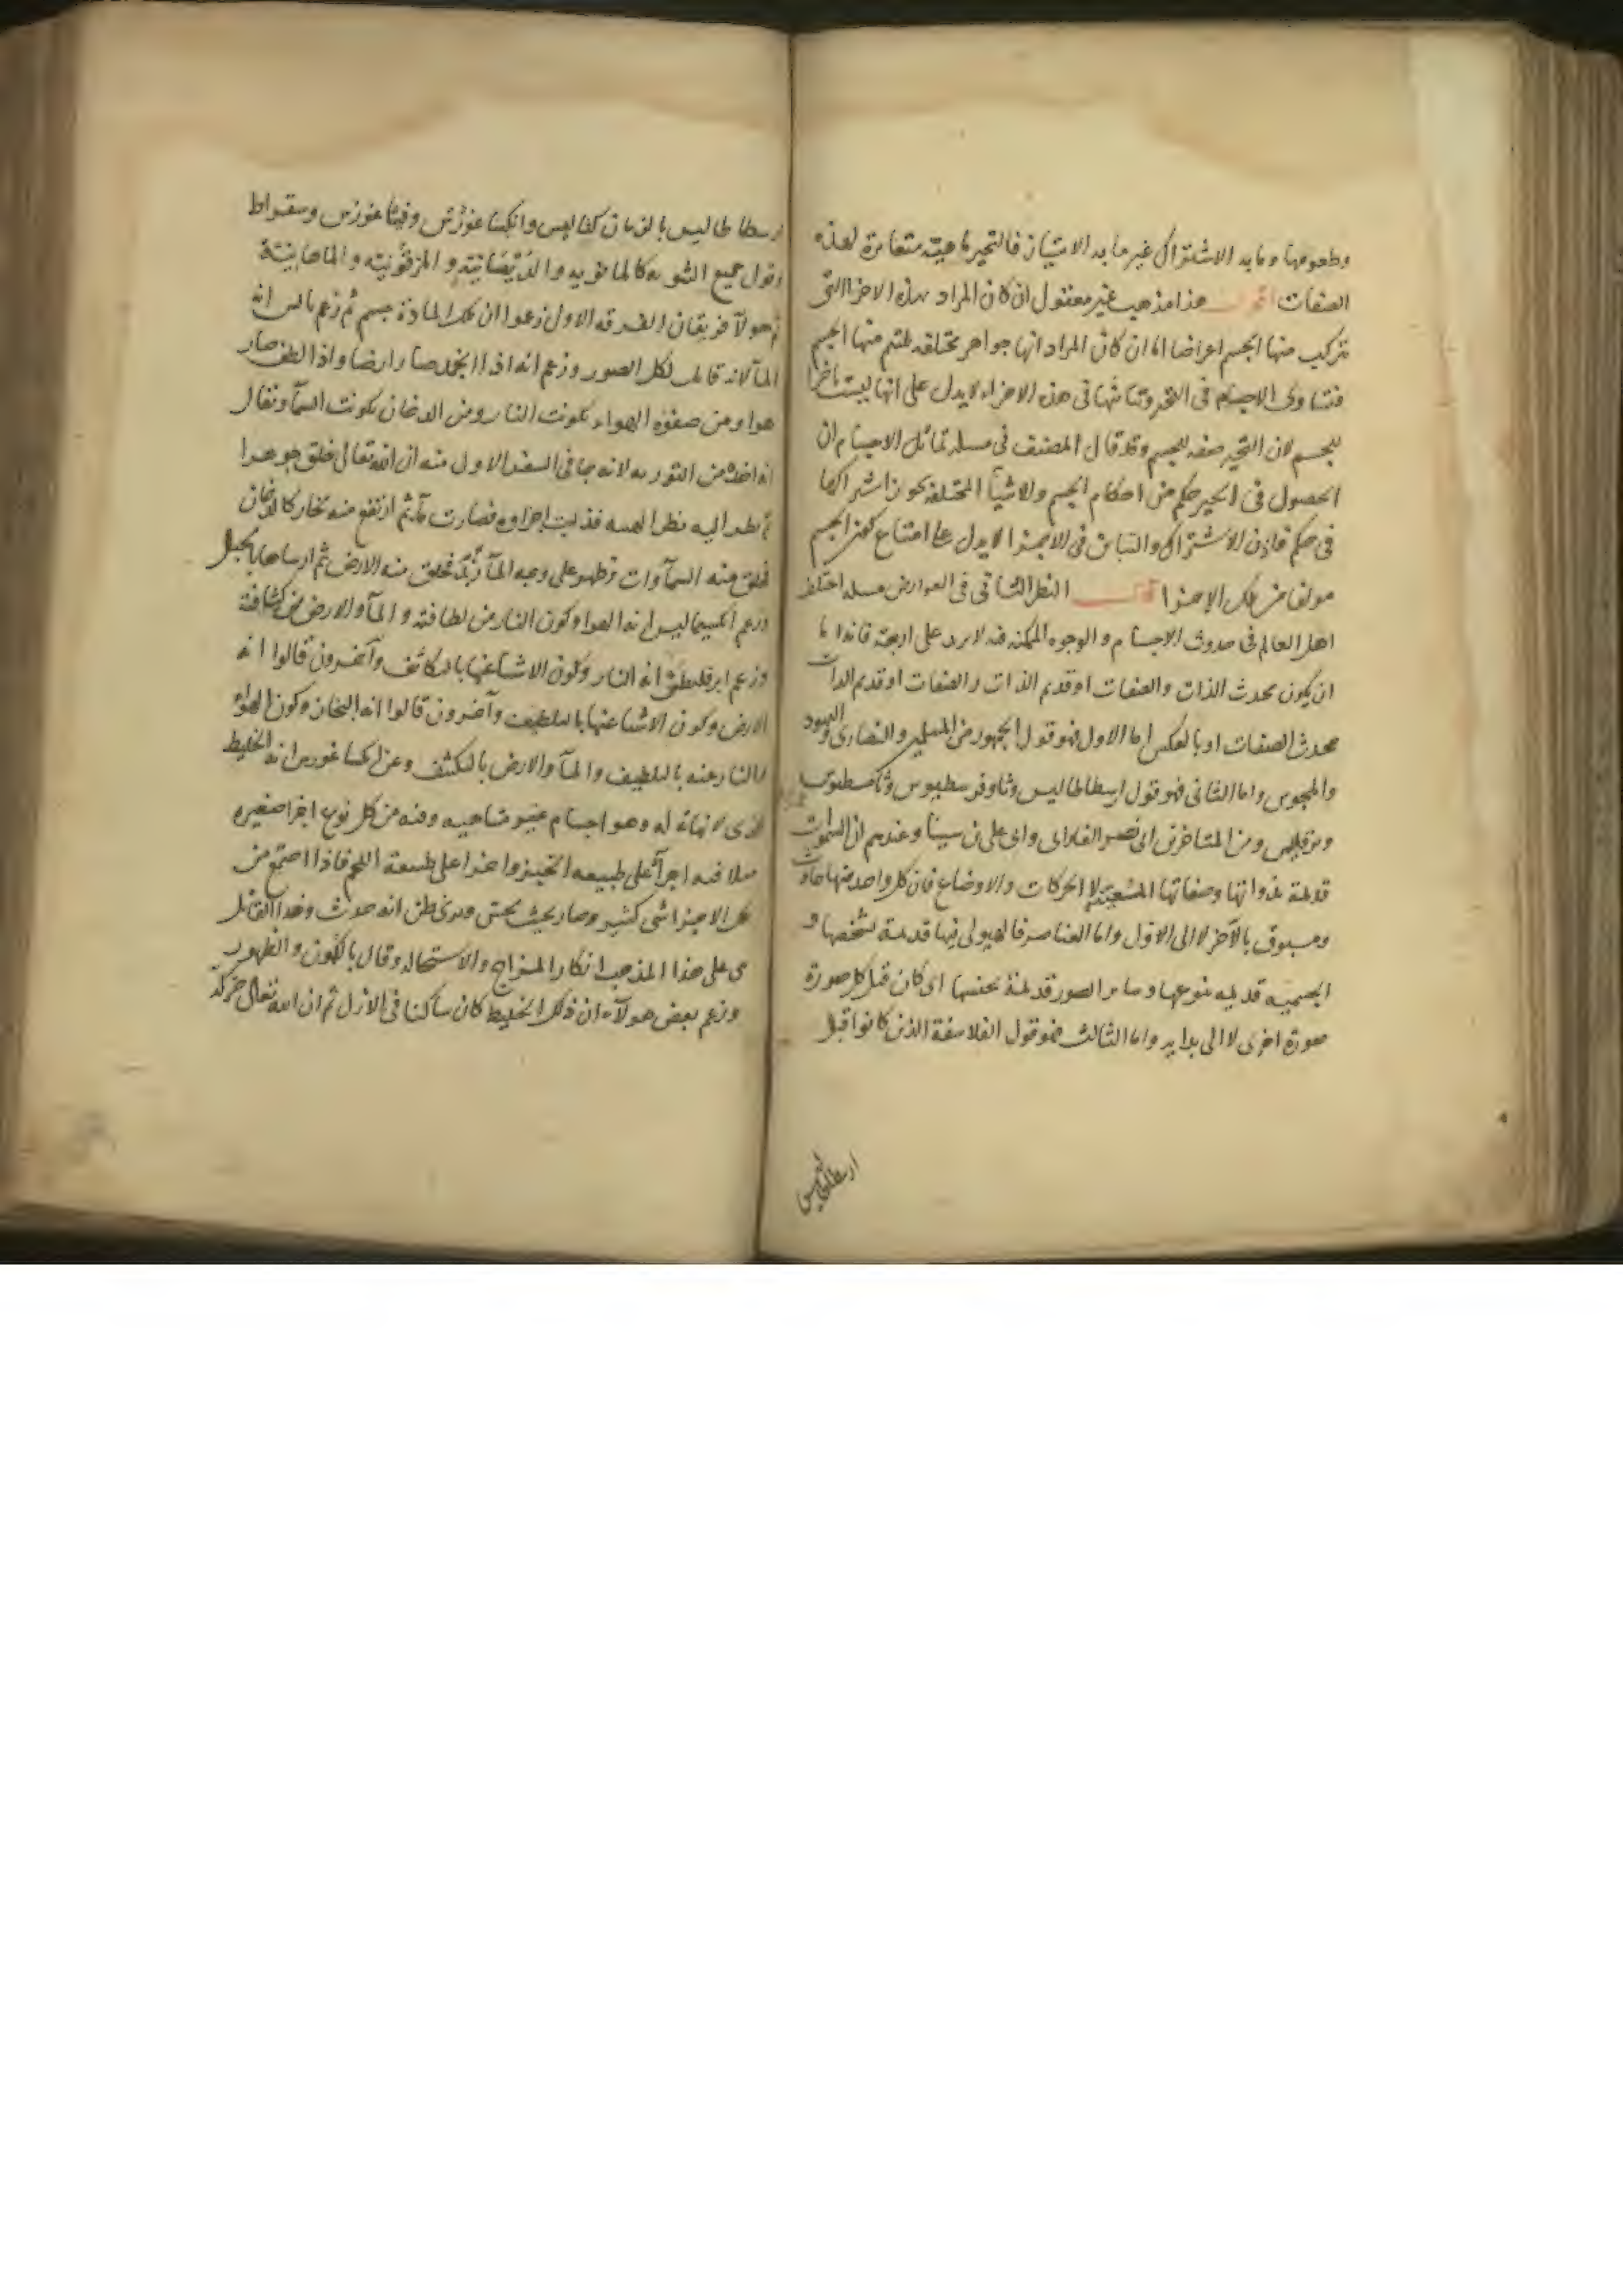 وطعومها وما به الاشتراك غير ما به الامتياز فالتحيز ماهية متغايرة لهذه
الصفات اقول هذا مذهب غير معقول ان كان المراد بهذه الاجزا التى
يتركب منها الجسم اعراضا اما ان كان المراد انها جواهر مختلفة يلتئم منها الجسم
فتساوى الاجسام فى التحيز وتباينها فى هذه الاجزاء لا يدل على انها ليست باجزا
للجسم لان التحيز صفه للجسم وقد قال المصنف فى مسله تماثل الاجسام ان
الحصول فى الحيز حكم من احكام الجسم والاشيآ المختلفة يجوز اشتراكها
فى حكم فاذن الاشتراك والتباين فى الاجزا لا يدل على امتناع كون الجسم
مولفا من تلك الاجزا قال النظر الثانى فى العوارض مسله اختلف
اهل العالم فى حدوث الاجسام والوجوه الممكنه فيه لا يزيد على اربعة فانه اما
ان يكون محدث الذات والصفات او قديم الذات والصفات او قديم الذات
محدث الصفات او بالعكس اما الاول فهو قول الجمهور من المسلمين والنصارى واليهود
والمجوس واما الثانى فهو قول ارسطاطاليس وثاوفرسطيوس وثامسطيوس
وبرقليس ومن المتاخرين ابى نصر الفارابى وابى على بن سينا وعندهم ان السموات
قديمة بذواتها وصفاتها المعينة الا الحركات والاوضاع فان كل واحد منها حادث
ومسبوق بالآخر لا الى الاول واما العناصر فالهيولى فيها قديمة بشخصها و
الجسمية قديمه بنوعها وساير الصور قديمة بجنسها اى كان قبل كل صورة
صورة اخرى لا الى بدايه واما الثالث فهو قول الفلاسفة الذين كانوا قبل
ارسطاطاليس
ارسطاطاليس بالزمان كثاليس وانكساغورس وفيثاغورس وسقراط
وقول جميع الثنويه كالمانويه والديصانية و المرقونيه والماهانية
ثم هولآ فريقان الفرقه الاولى زعموا ان تلك المادة جسم ثم زعم ثاليس انه
المآ لانه قابل لكل الصور وزعم انه اذا انجمد صار ارضا واذا لطف صار
هوا ومن صفوة الهواء تكونت النار ومن الدخان تكونت السمآ ويقال
انه اخذه من التوريه لانه جا فى السفر الاول منه ان الله تعالى خلق جوهرا
ثم نظر اليه نظر الهيبه فذابت اجزاوه فصارت مآ ثم ارتفع منه بخار كالدخان
فخلق منه السمآوات وظهر على وجه المآ زبد فخلق منه الارض ثم ارساها بالجبال
وزعم انكسيماليس انه الهوا وكون النار من لطافته و المآ والارض من كثافته
وزعم ابرقليطس انه النار وكون الاشيآ عنها بالتكاثف وآخرون قالوا انه
الارض وكون الاشيا عنها بالتلطيف وآخرون قالوا انه البخار وكون الهواء
والنار عنه بالتلطيف والمآ والارض بالتكثف وعن انكساغورس انه الخليط
الذى لا نهاية له وهو اجسام غير متناهيه وفيه من كل نوع اجزا صغيره
مثلا فيه اجزآ على طبيعه الخبز واجزا على طبيعة اللحم فاذا اجتمع من
تلك الاجزا شى كثير وصار بحيث يحس ويرى ظن انه حدث وهذا القائل
بنى على هذا المذهب انكار المزاج والاستحاله وقال بالكمون والظهور
وزعم بعض هولآء ان ذلك الخليط كان ساكنا فى الازل ثم ان الله تعالى حركه